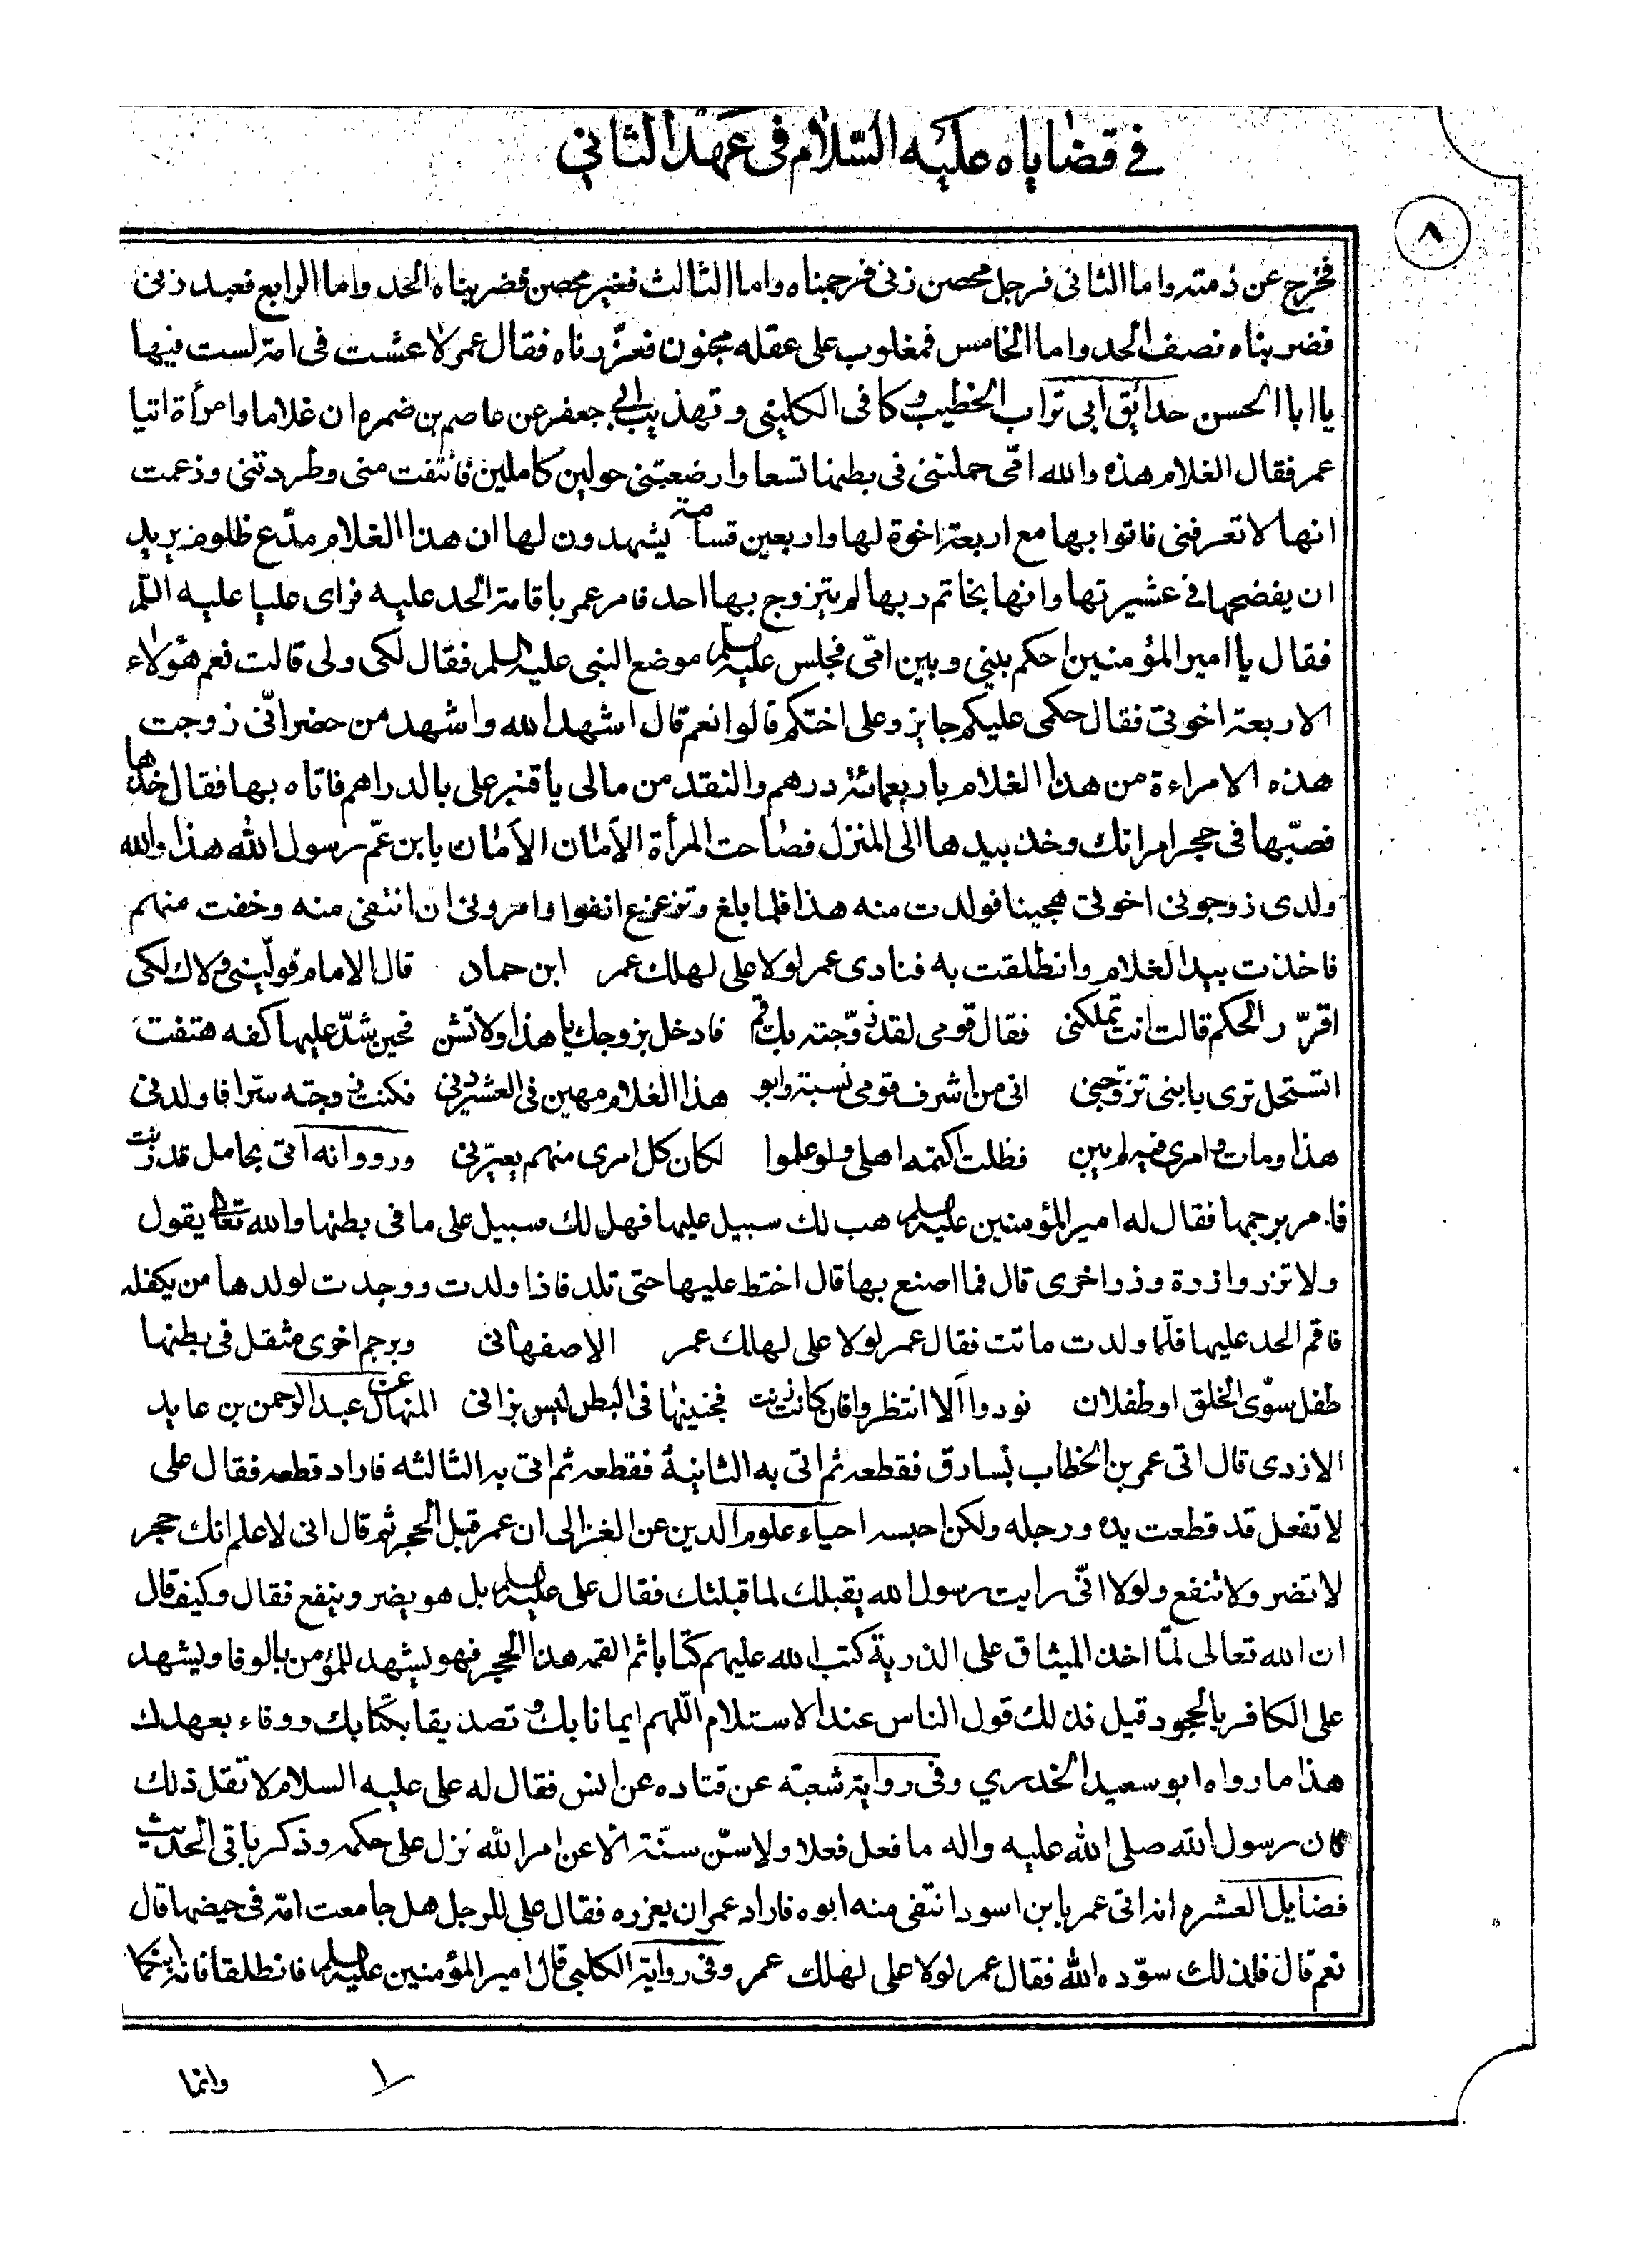 في قضاياه عليه السلام في عهد الثاني
٨
فخرج عن ذمته واما الثانى فرجل محصن زنى فرجمناه واما الثالث فغير محصن فضربناه الحد واما الرابع فعبد زنى
فضربناه نصف الحد واما الخامس فمغلوب على عقله مجنون فعزّرناه فقال عمر لا عشت فى امة لست فيها
يا ابا الحسن حدائق ابى تراب الخطيب وكافى الكلينى وتهذيب ابى جعفر عن عاصم بن ضمره ان غلاما وامرأة اتيا
عمر فقال الغلام هذه والله امّى حملتنى فى بطنها تسعا وارضعتنى حولين كاملين فانتفت منى وطردتنى وزعمت
انها لا تعرفنى فاتوا بها مع اربعة اخوة لها واربعين قسامة يشهدون لها ان هذا الغلام مدّع ظلوم يريد
ان يفضحها في عشيرتها وانها بخاتم ربها لم يتزوج بها احد فامر عمر باقامة الحد عليه فراى عليا عليه السلم
فقال يا امير المؤمنين احكم بينى وبين امّى فجلس عليه السلم موضع النبى عليه السلم فقال لكى ولى قالت نعم هؤلاء
الاربعة اخوتى فقال حكمى عليكم جايز وعلى اختكم قالوا نعم قال اشهد الله واشهد من حضر انّى زوجت
هذه الامراءة من هذا الغلام باربعمائة درهم والنقد من مالى يا قنبر على بالدراهم فاتاه بها فقال خذها
فصبّها فى حجر امراتك وخذ بيدها الى المنزل فصاحت المرأة الأمان الأمان يا بن عمّ رسول الله هذا والله
ولدى زوجونى اخوتى هجينا فولدت منه هذا فلما بلغ وترعرع انفوا وامرونى ان انتفى منه وخفت منهم
فاخذت بيد الغلام وانطلقت به فنادى عمر لولا على لهلك عمر ابن حماد قال الامام فولّينى ولاك لكى
اقرّر الحكم قالت انت تملكنى فقال قومى لقد زوّجته بك قم فادخل بزوجك يا هذا ولا تشن فحين شدّ عليها كفه هتفت
اتستحل ترى بابنى تزوّجنى انى من اشرف قومى نسبة وابو هذا الغلام مهين فى العشير دنى فكنت زوجته سرّا فاولدنى
هذا ومات وامرى فيه لم يبن فظلت اكتمه اهلى ولو علموا لكان كل امرى منهم يعيرّنى ورووا انه اتى بحامل قد زنت
فامر برجمها فقال له امير المؤمنين عليه السلم هب لك سبيل عليها فهل لك سبيل على ما فى بطنها والله تعالى يقول
ولا تزر وازرة وزر اخرى قال فما اصنع بها قال احتط عليها حتى تلد فاذا ولدت ووجدت لولدها من يكفله
فاقم الحد عليها فلمّا ولدت ماتت فقال عمر لولا على لهلك عمر الاصفهانى وبرجم اخرى مثقل فى بطنها
طفل سوّى الخلق او طفلان نودوا ألا انتظروا فان كانت زنت فجنينها فى البطن ليس بزانى المنهال عن عبد الرحمن بن عايد
الازدى قال اتى عمر بن الخطاب بسارق فقطعه ثم اتى به الثانية فقطعه ثم اتى به الثالثه فاراد قطعه فقال على
لا تفعل قد قطعت يده ورجله ولكن احبسه احياء علوم الدين عن الغزالى ان عمر قبل الحجر ثم قال انى لاعلم انك حجر
لا تضر ولا تنفع ولولا انّى رايت رسول الله يقبلك لما قبلتك فقال على عليه السلم بل هو يضر وينفع فقال وكيف قال
ان الله تعالى لمّا اخذ الميثاق على الذرية كتب الله عليهم كتابا ثم القمه هذا الحجر فهو يشهد للمؤمن بالوفا ويشهد
على الكافر بالجحود قيل فذلك قول الناس عند الاستلام اللهم ايمانا بك وتصديقا بكتابك ووفاء بعهدك
هذا ما رواه ابو سعيد الخدري وفى رواية شعبة عن قتاده عن انس فقال له على عليه السلام لا تقل ذلك
فان رسول الله صلى الله عليه واله ما فعل فعلا ولا سنّ سنّة الا عن امر الله نزل على حكمه وذكر باقى الحديث
فضايل العشره انه اتى عمر بابن اسود انتفى منه ابوه فاراد عمر ان يعزره فقال على للرجل هل جامعت امّه فى حيضها قال
نعم قال فلذلك سوّده الله فقال عمر لولا على لهلك عمر وفى رواية الكلبى قال امير المؤمنين عليه السلم فانطلقا فانه ابنكما
وانما